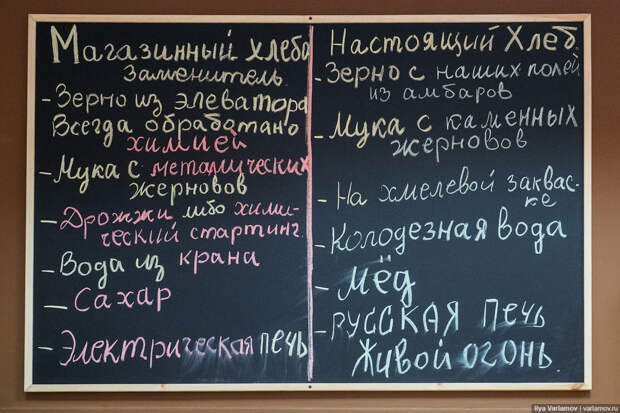 Магазинный хлебо
Заменитель
- Зерно из элеватора
Всегда обработано
химией
- Мука с металлических
жерновов
- Дрожжи либо хими-
ческий стартинг.
- Вода из крана
- Сахар
- Электрическая печь
Настоящий Хлеб.
- Зерно с наших полей
из амбаров
- Мука с каменных
жерновов
- На хмелевой заквас-
ке
- Колодезная вода
- Мёд
- РУССКАЯ Печь
Живой огонь.
© Ilya Varlamov | varlamov.ru